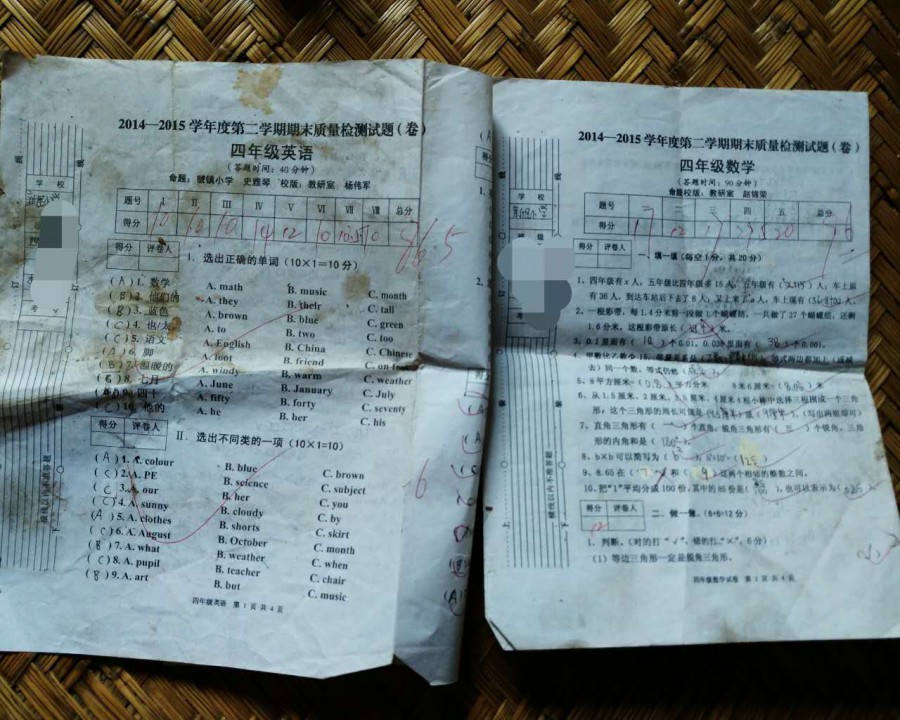 2014—2015 学年度第二学期期末质量检测试题（卷）
四年级英语
（答题时间：40分钟）
命题：虢镇小学 史雅琴 校版：教研室 杨伟军
学 校
题号 I II III IV V VI VII VIII 总分
得分 10 10 10 14 12 10 10.5 10 86.5
得分 评卷人
I. 选出正确的单词（10×1=10分）
( A ) 1. 数学 A. math B. music C. month
( B ) 2. 他们的 A. they B. their C. tall
( B ) 3. 蓝色 A. brown B. blue C. green
( C ) 4. 也/太 A. to B. two C. too
( C ) 5. 语文 A. English B. China C. Chinese
( A ) 6. 脚 A. foot B. friend C. on foot
( B ) 7. 温暖的 A. windy B. warm C. weather
( C ) 8. 七月 A. June B. January C. July
9. 四十 A. fifty B. forty C. seventy
( C ) 10. 他的 A. he B. her C. his
得分 评卷人
II. 选出不同类的一项（10×1=10）
( A ) 1. A. colour B. blue C. brown
( C ) 2. A. PE B. science C. subject
( C ) 3. A. our B. her C. you
( C ) 4. A. sunny B. cloudy C. by
( A ) 5. A. clothes B. shorts C. skirt
( C ) 6. A. August B. October C. month
( B ) 7. A. what B. weather C. when
( C ) 8. A. pupil B. teacher C. chair
( B ) 9. A. art B. but C. music
四年级英语 第 1 页 共 4 页
2014—2015 学年度第二学期期末质量检测试题（卷）
四年级数学
（答题时间：90分钟）
命题校版：教研室 赵锦荣
学 校
题号 一 二 三 四 五 总分
得分 17 12 20
得分 评卷人
一、填一填（每空1分，共20分）
1、四年级有x人，五年级比四年级多15人，五年级有（ ）人；车上原
有36人，到达车站后下去了8人，又上来 人，车上现有（ ）人。
2、一根彩带，每1.4分米剪一段做1个蝴蝶结，一共做了27个蝴蝶结，还剩
1.6分米，这根彩带原长（ ）米。
3、0.1里面有（ 10 ）个0.01，0.038里面有（ 38 ）个0.001。
等式两边都加上（或减
去）同一个数，等式仍然（ ）
5、8平方厘米=（ ）平方分米 8米6厘米=（ 8.06 ）米
6、从1.5厘米、2厘米、3.5厘米、4厘米4根小棒中选择三根围成一个三角
形，这个三角形的周长可能是（ ）或（ ）。（写出两组即可）
7、直角三角形有（ ）个直角，锐角三角形有（ ）个锐角，三角
形的内角和是（ 180° ）
8、b×b可以简写为（ ）
9、8.65在（ ）和（ 9 ）这两个相邻的整数之间。
10、把“1”平均分成100份，其中的85份是（ ），也可以表示为（ ）
得分 评卷人
12
二、做一做。（6+6=12分）
1、判断。（对的打“√”，错的打“×”，6分）
（1）等边三角形一定是锐角三角形。
四年级数学试卷 第 1 页 共 4 页